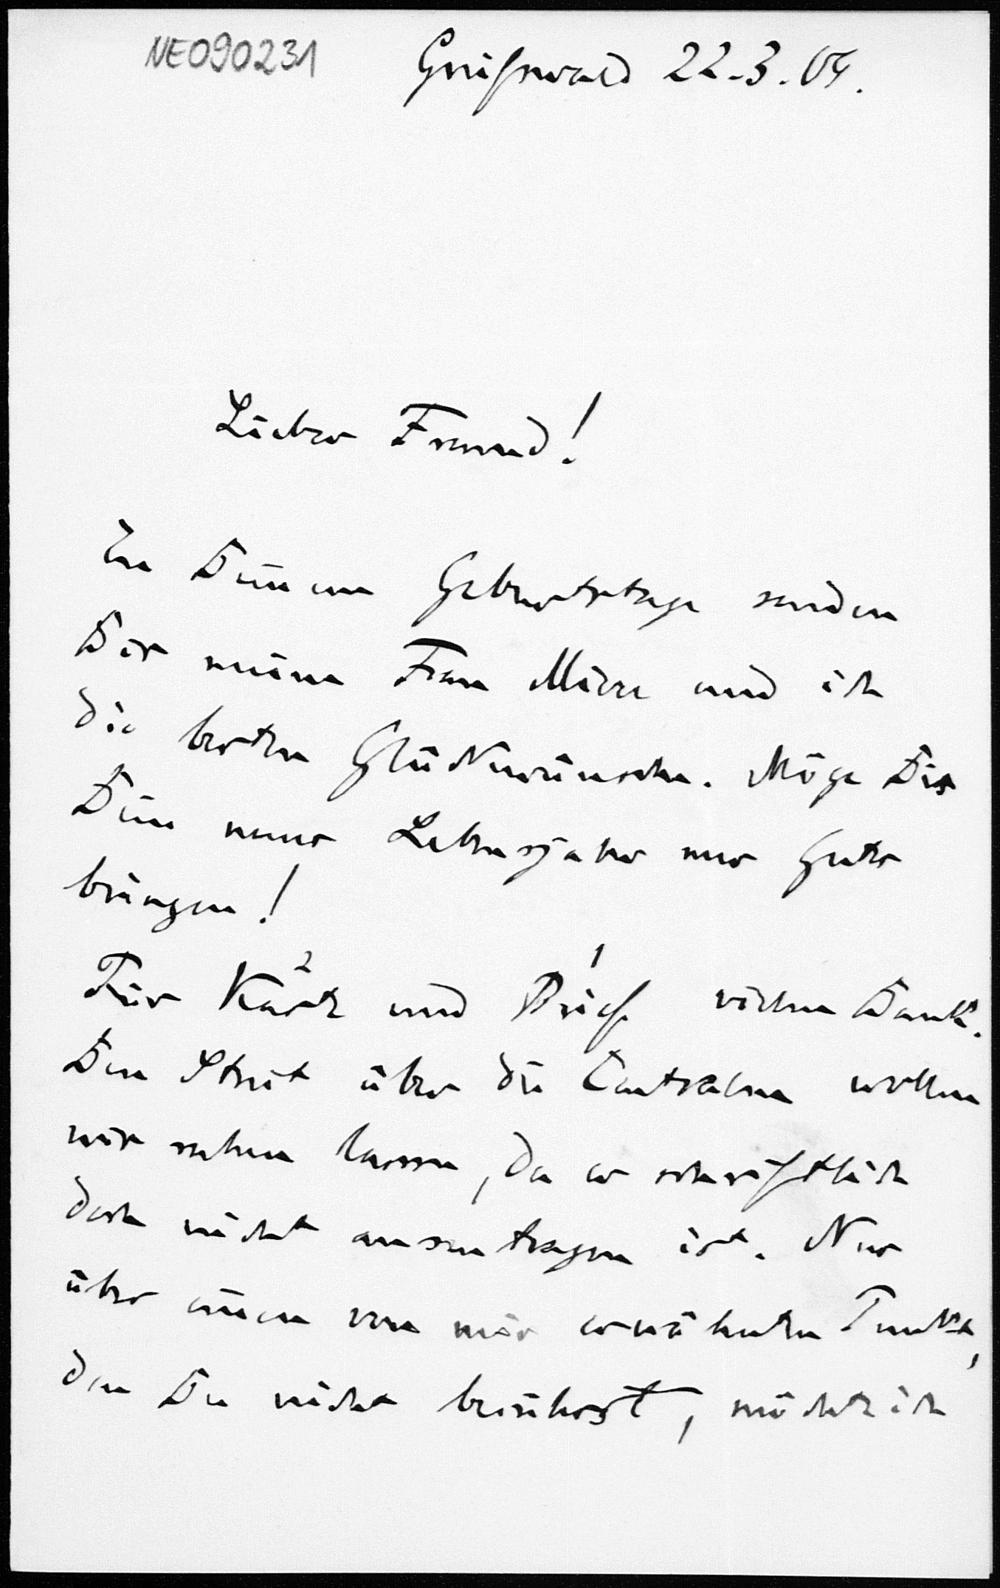 NE090231
Greifswald 22.3.04.
Lieber Freund!
Zu Deinem Geburtstage senden
Dir meine Frau Marie und ich
die besten Glückwünsche. Möge Dir
Dein neues Lebensjahr nur Gutes
bringen!
Für Karte und Brief vielen Dank.
2 1
Den Streit über die Centralen wollen
wir ruhen lassen, da er schriftlich
doch nicht auszutragen ist. Nur
über einen von mir erwähnten Punkt,
den Du nicht berührst, möchte ich